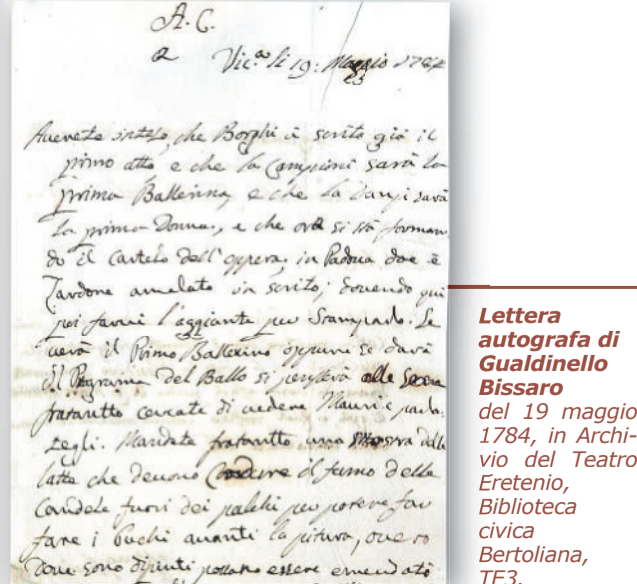 A. C.
a Vic.ª li 19: Maggio 1784
Averete inteso, che Borghi à scrito già il
primo atto e che la Campioni sarà la
prima Ballerina, e che la Danzi sarà
la prima Donna, e che ora si stà forman
do il Cartelo dell'oppera, in Padova dove è
Zardone amalato in scrito; dovendo qui
poi farvi l'aggiunte per Stamparlo. Se
verà il Primo Ballerino oppure se darà
il Programa del Ballo si penserà alle Scene
fratantto cercate di vedere Mauri e parla
tegli. Mandate fratantto una mostra delle
latte che devono Condure il fumo delle
Candele fuori dei palchi per potere far
fare i buchi avanti la pitura, overo
dove sono dipinti possano essere emendati
Lettera
autografa di
Gualdinello
Bissaro
del 19 maggio
1784, in Archi-
vio del Teatro
Eretenio,
Biblioteca
civica
Bertoliana,
TE3.